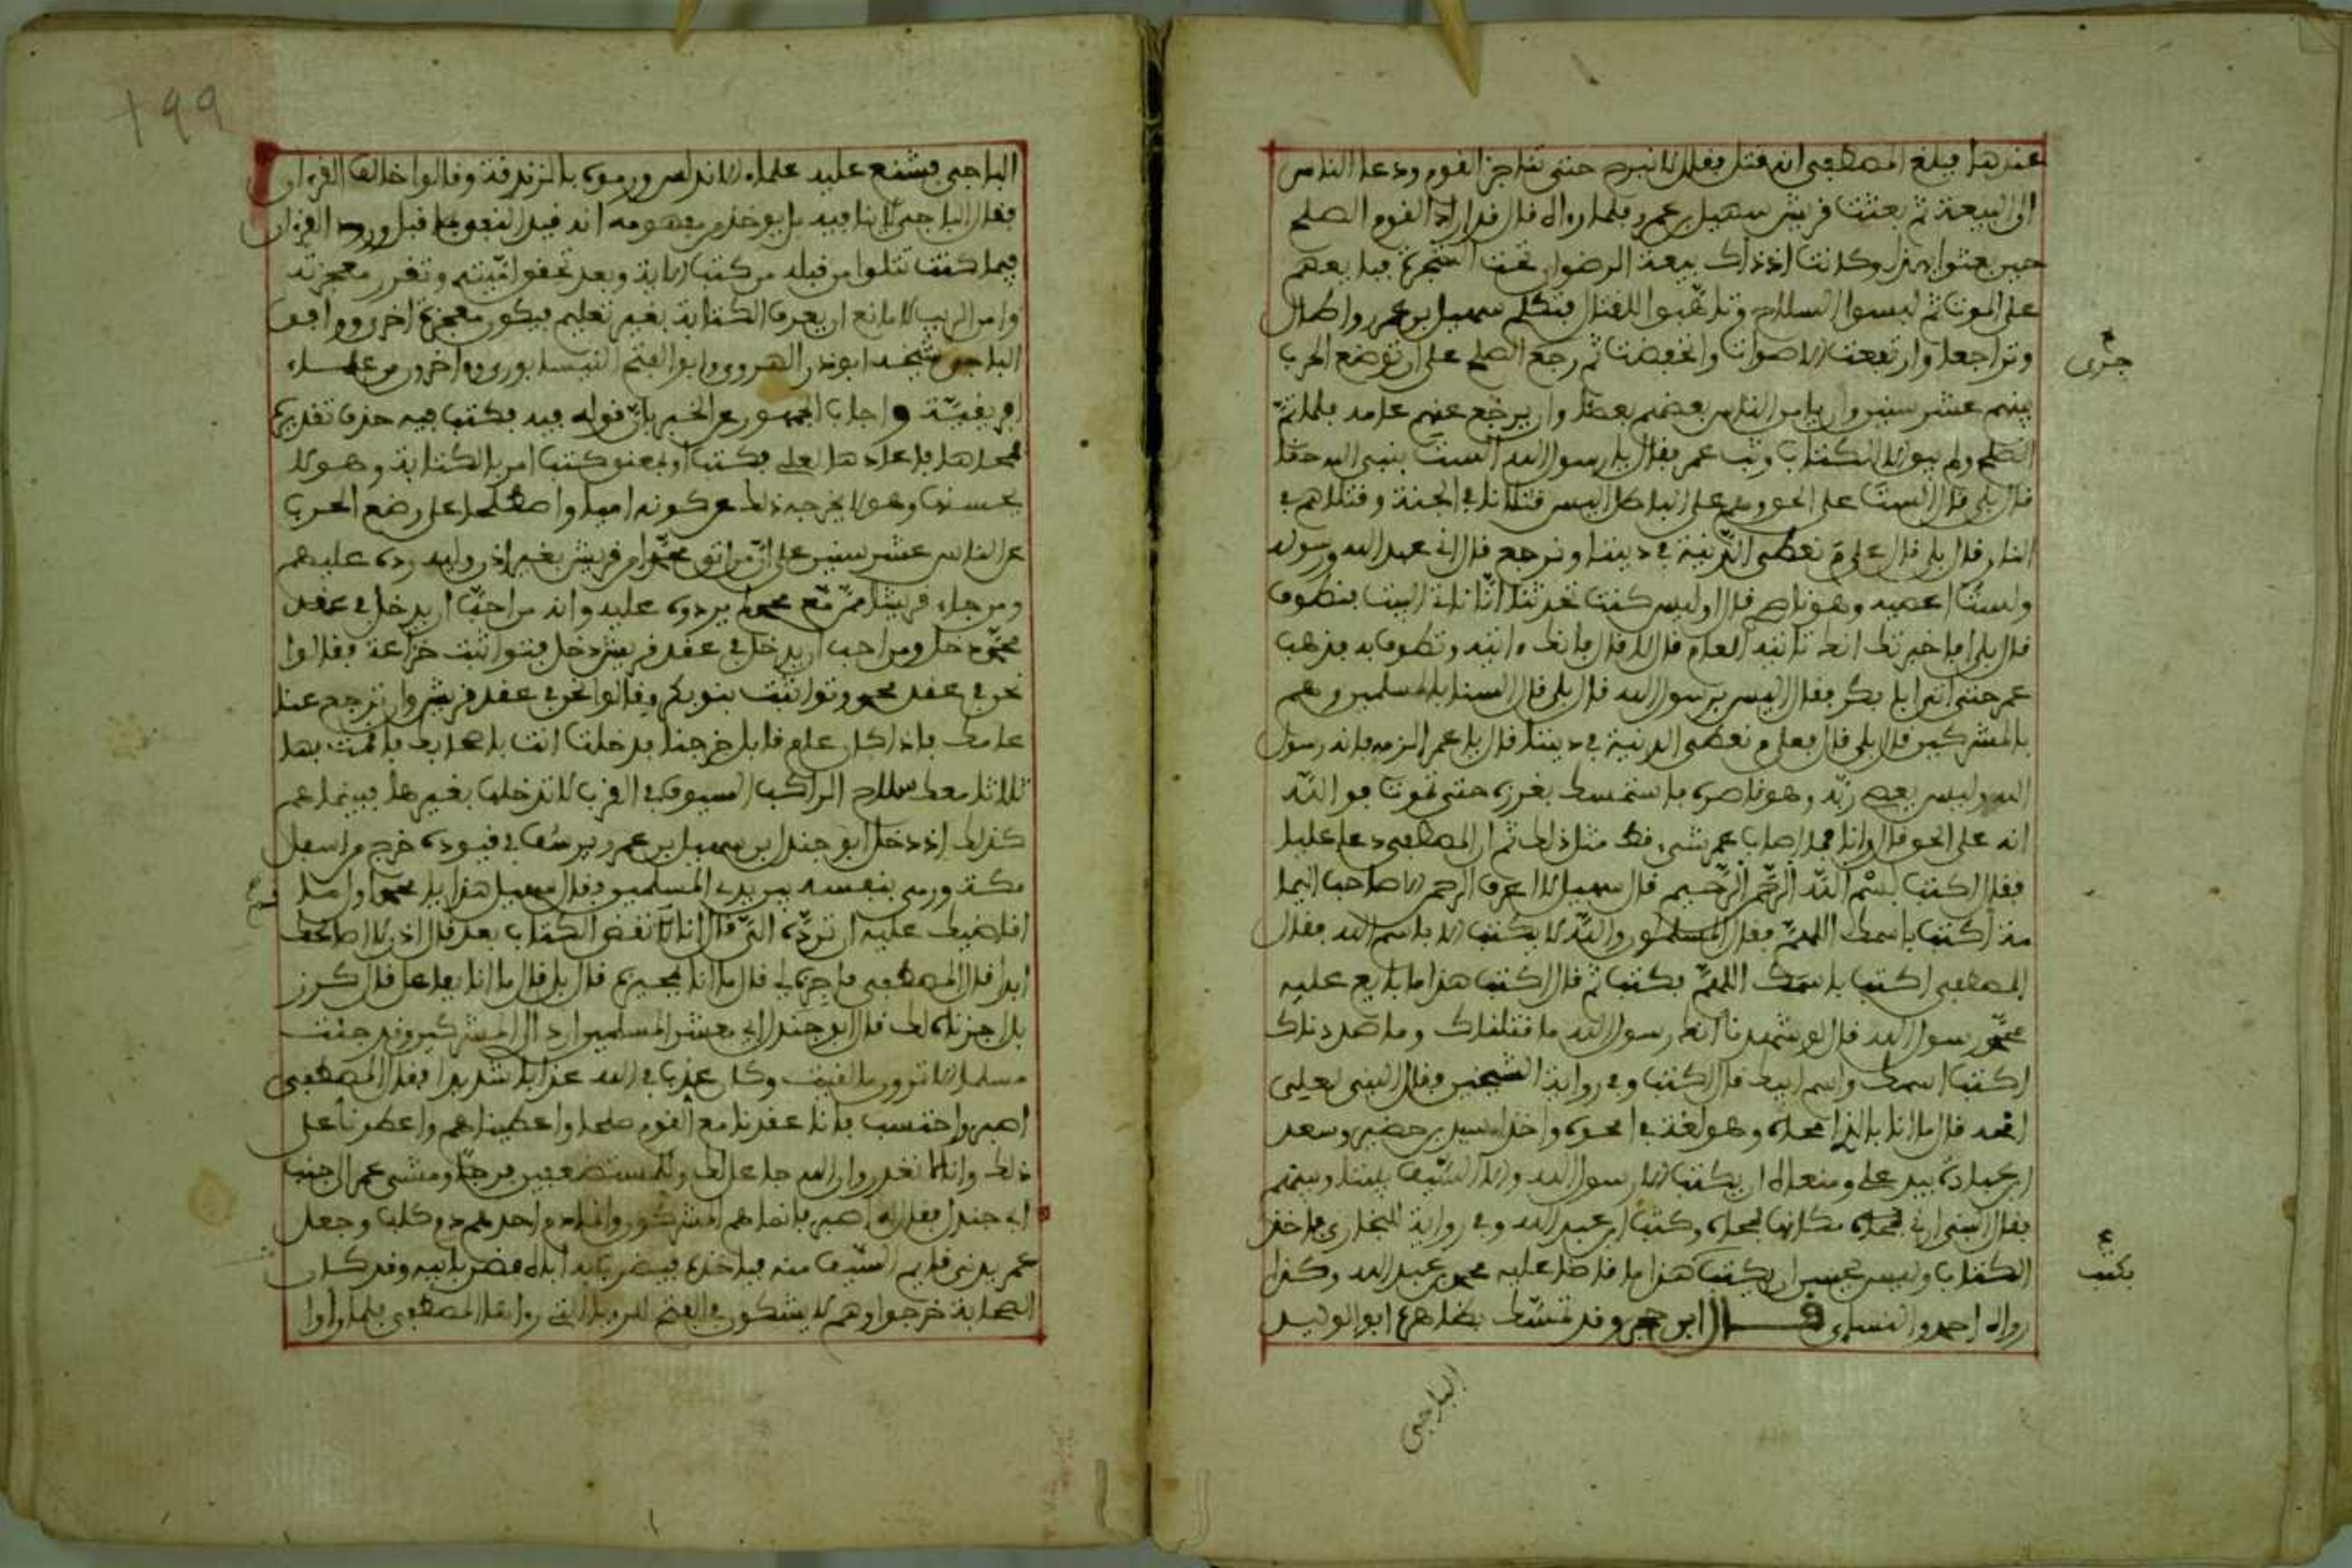 عندها فبلغ المصطفى انه قتل فقال لا نبرح حتى نناجز القوم ودعا الناس
الى البيعة ثم بعثت قريش سهيل بن عمرو فلما رءاه قال قد اراد القوم الصلح
حين بعثوا هذا وكانت اذ ذاك بيعة الرضوان تحت الشجرة فبايعهم
على الموت ثم لبسوا السلاح وتاهبوا للقتال فتكلم سهيل بن عمرو واطال
وتراجعا وارتفعت الاصوات وانخفضت ثم رجع الصلح على ان توضع الحرب
جرى
بينهم عشر سنين وان يامن الناس بعضهم بعضا وان يرجع عنهم عامه فلما تم
الصلح ولم يبق الا الكتاب وثب عمر فقال يا رسول الله الست بنبي الله حقا
قال بلى قال السنا على الحق وهم على الباطل اليس قتلانا في الجنة وقتلاهم في
النار قال بلى قال علام نعطي الدنية في ديننا ونرجع قال اني عبد الله ورسوله
ولست اعصيه وهو ناصري قال اوليس كنت تحدثنا انا ناتي البيت فنطوف
قال بلى افاخبرتك انك تاتيه العام قال لا قال فانك ءاتيه وتطوف به فذهب
عمر حتى اتى ابا بكر فقال اليس برسول الله قال بلى قال السنا بالمسلمين وهم
بالمشركين قال بلى قال فعلام نعطي الدنية في ديننا قال يا عمر الزمه فانه رسول
الله وليس يعصي ربه وهو ناصره فاستمسك بغرزه حتى تموت فوالله
انه على الحق قالوا فما اصاب عمر شيء قط مثل ذلك ثم ان المصطفى دعا عليا
فقال اكتب بسم الله الرحمن الرحيم قال سهيل لا اعرف الرحمن الا صاحب اليما
مة اكتب باسمك اللهم فقال المسلمون والله لا يكتب الا باسم الله فقال
المصطفى اكتب باسمك اللهم فكتب ثم قال اكتب هذا ما بايع عليه
محمد رسول الله قال لو شهدنا انك رسول الله ما قتلناك وما صددناك
اكتب اسمك واسم ابيك قال اكتب وفي رواية الشيخين فقال النبي لعلي
امحه قال ما انا بالذي امحاه وهو لغة في امحوه واخذ اسيد بن حضير وسعد
ابن عبادة بيد علي ومنعاه ان يكتب الا رسول الله والا السيف بيننا وبينهم
فقال النبي ارني مكانها فمحاه وكتب ابن عبد الله وفي رواية البخاري فاخذ
الكتاب وليس يحسن ان يكتب هذا ما قاضا عليه محمد بن عبد الله وكذا
يكتب
رواه احمد والنساءي قال ابن حجر وقد تمسك بظاهره ابو الوليد
الباجي
199
الباجي فشنع عليه علماء الاندلس ورموه بالزندقة وقالوا خالف القرءان
فقال الباجي لا ينافيه بل يوخذ من مفهومه انه قيد النفي بما قبل ورود القرءان
فيما كنت تتلوا من قبله من كتاب الاية وبعد تحقق اميته وتقرر معجزته
وامن الريب لا مانع ان يعرف الكتابة بغير تعليم فيكون معجزة اخرى ووافق
الباجي شيخه ابو ذر الهروي وابو الفتح النيسابوري وءاخرون من علماء
افريقية واجاب الجمهور عن الخبر بان قوله فيه فكتب فيه حذف تقديره
فمحاها فاعادها لعلي فكتب او بمعنى كتب امر بالكتابة وهو لا
يحسنها وهو لا يخرجه ذلك عن كونه اميا واصطلحا على وضع الحرب
عن الناس عشر سنين على ان من اتى محمدا من قريش بغير اذن وليه رده عليهم
ومن جاء قريشا ممن مع محمد لم يردوه عليه وانه من احب ان يدخل في عقد
محمد دخل ومن احب ان يدخل في عقد قريش دخل فتواثبت خزاعة فقالوا
نحن في عقد محمد وتواثبت بنو بكر وقالوا نحن في عقد قريش وان ترجع عنا
عامك فاذا كان عام قابل خرجنا فدخلت انت باصحابك فاقمت بها
ثلاثا معك سلاح الراكب السيوف في القرب لا تدخلها بغيرها فبينما هم
كذلك اذ دخل ابو جندل بن سهيل بن عمرو يرسف في قيوده خرج من اسفل
مكة ورمى بنفسه بين يدي المسلمين فقال سهيل هذا يا محمد اول ما
اقاضيك عليه ان ترده الي قال انا لا نقض الكتاب بعد قال اذن لا اصالحك
ابدا قال المصطفى فاجزه لي قال ما انا بمجيزه قال بلى قال ما انا بفاعل قال مكرز
بلى اجزناه لك قال ابو جندل اي معشر المسلمين ارد الى المشركين وقد جئت
مسلما الا ترون ما لقيت وكان عذب في الله عذابا شديدا فقال المصطفى
اصبر واحتسب فانا عقدنا مع القوم صلحا واعطيناهم واعطونا على
ذلك وانا لا نغدر وان الله جاعل لك وللمستضعفين فرجا ومشى عمر الى جنب
ابي جندل فقال له اصبر فانما هم المشركون وانما دم احدهم دم كلب وجعل
عمر يدني قايم السيف منه لياخذه فيضرب به اباه فضن بابيه وقد كان
الصحابة خرجوا وهم لا يشكون في الفتح للرويا التي رواها المصطفى فلما راوا